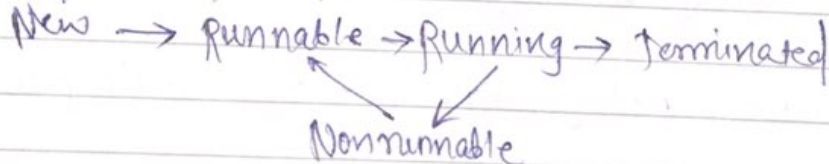 New → Runnable → Running → Terminated
Nonrunnable